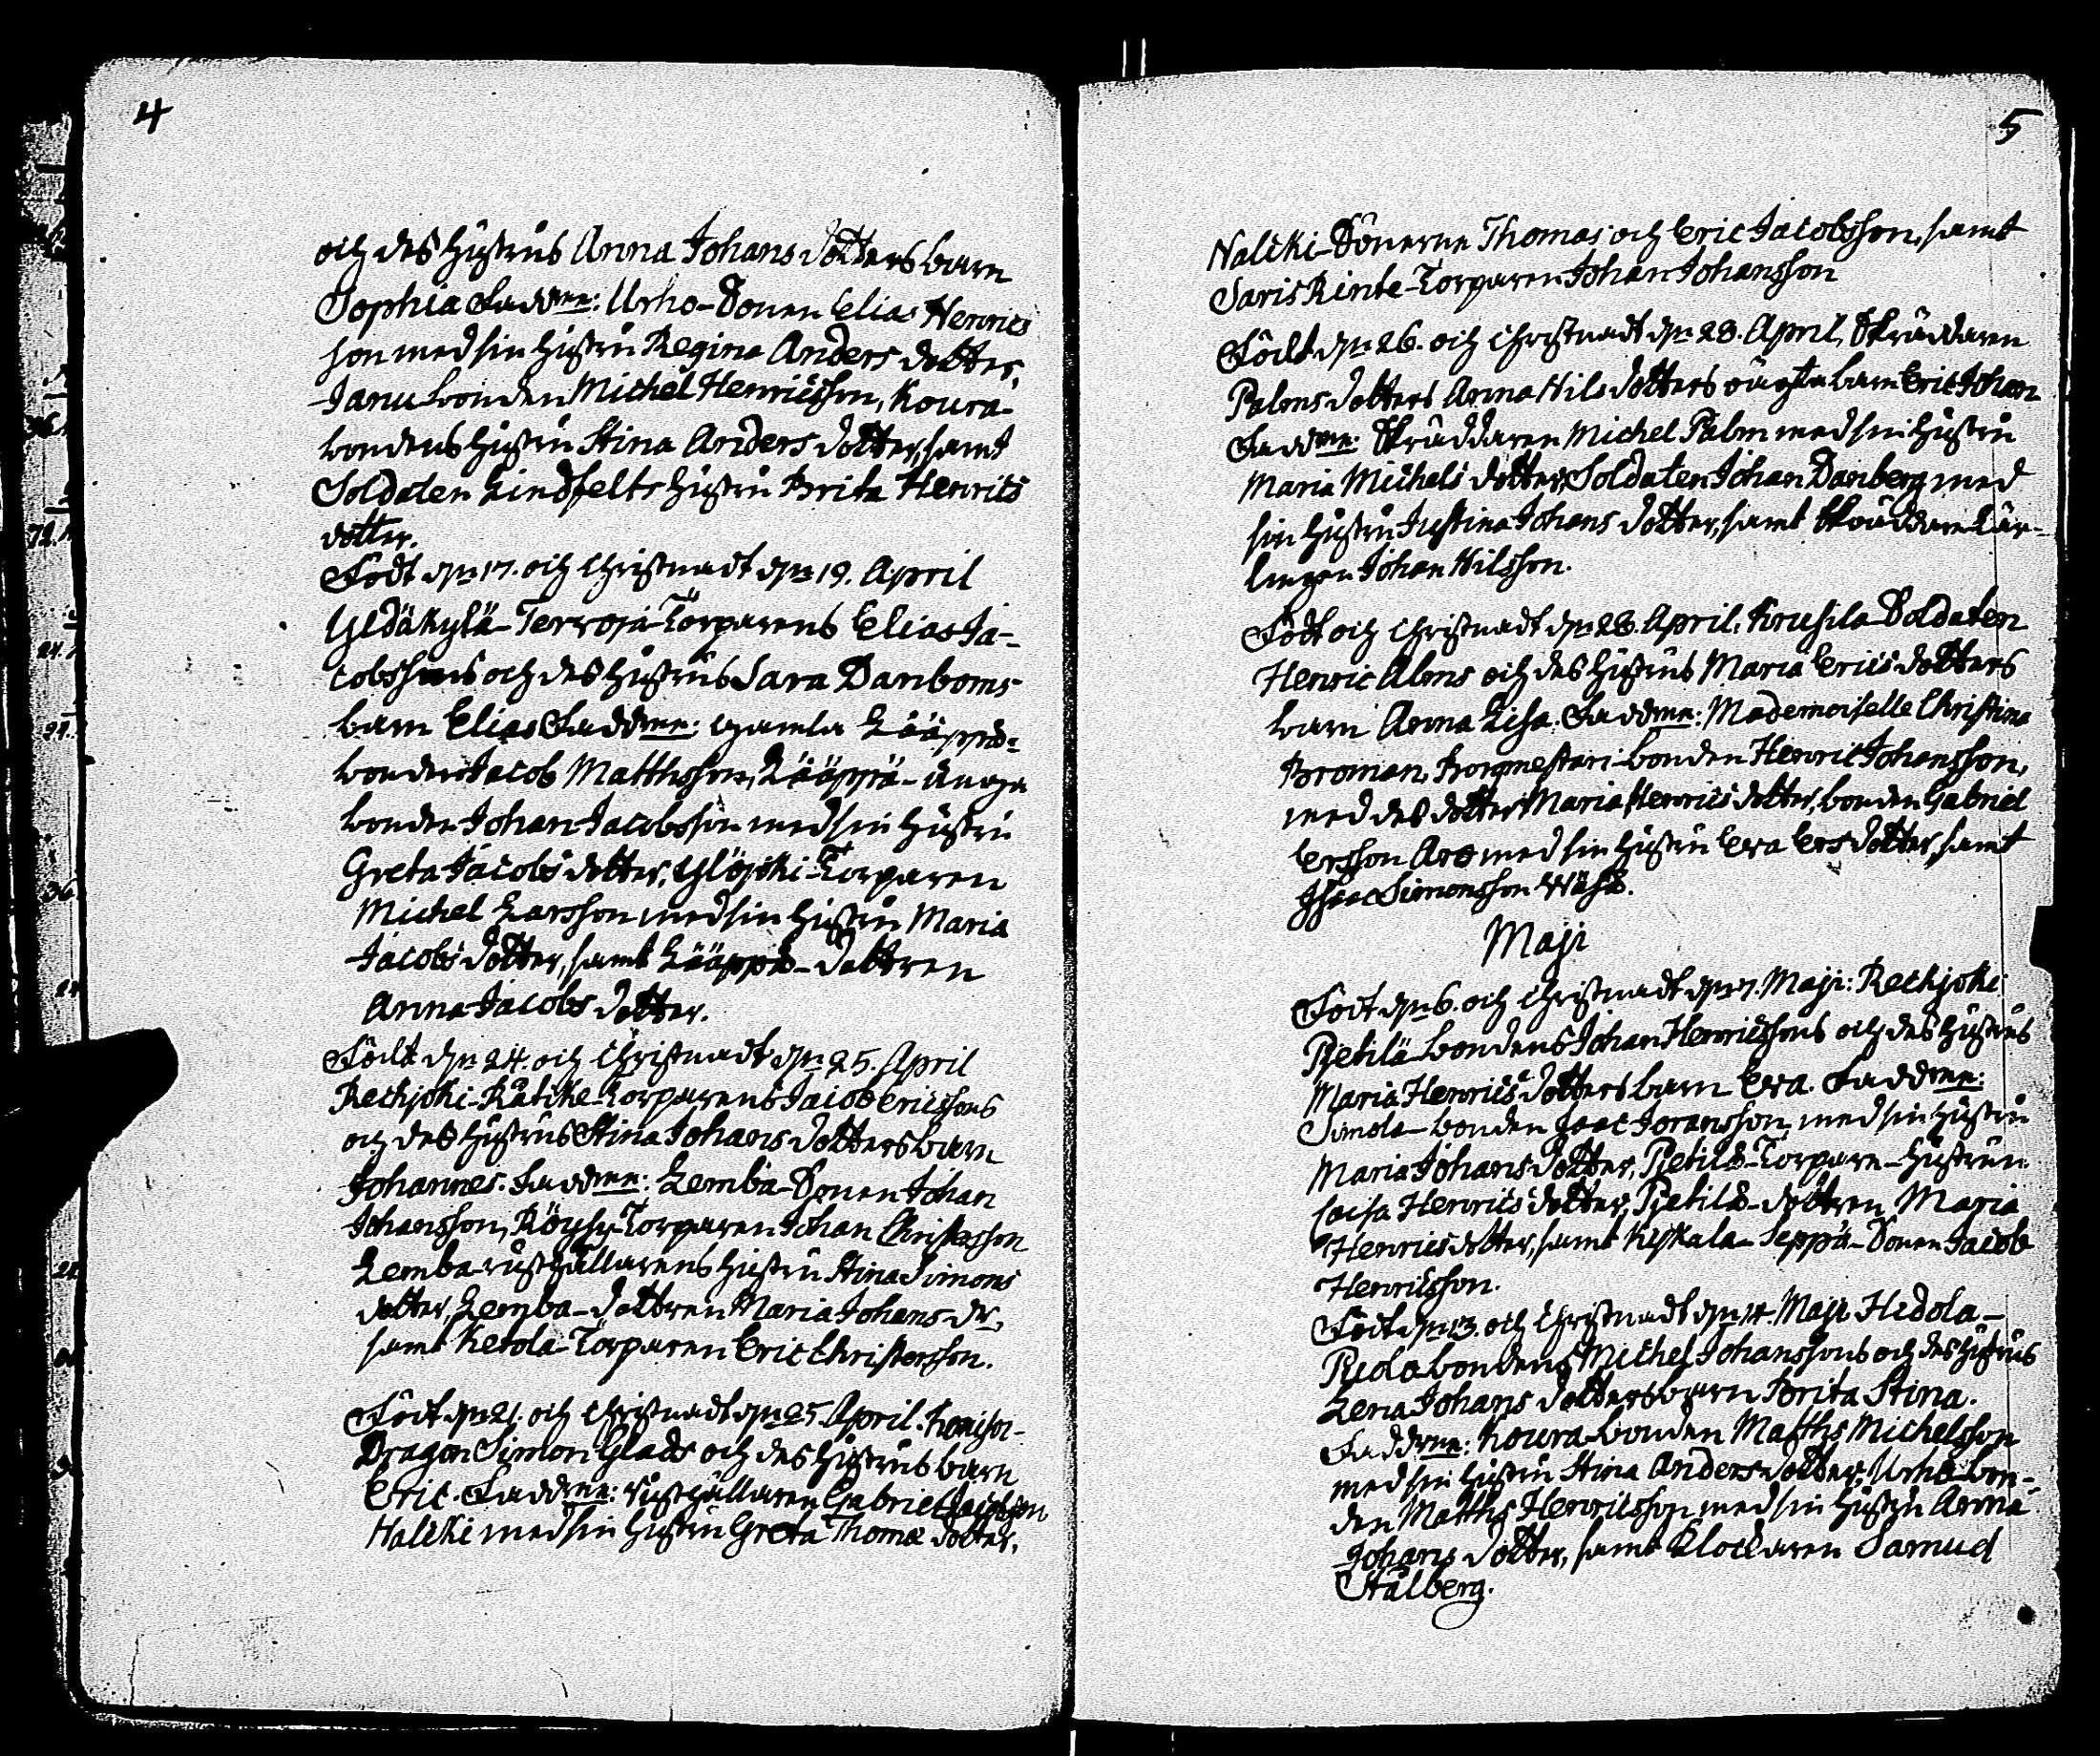 4
och des hustrus Anna Johans dotters barn
Sophia Faddrar: Urho-Sonen Elias Henrics
son med sin hustru Regina Anders dotter,
Janu bonden Michel Henricsson, Koura-
bondens hustru Stina Anders dotter, samt
Soldaten Lindfelts hustru Brita Henrics
dotter.
Född den 17. och Christnadt den 19. April
Yldäkylä-Terroja-Torparens Elias Ja-
cobssons och des hustrus Sara Danboms
barn Elias Faddrar: gamla Lääppä-
bonden Jacob Matthsson, Lääppä-unga
bonden Johan Jacobsson med sin hustru
Greta Jacobs dotter, Ylöjoki-Torparen
Michel Larsson med sin hustru Maria
Jacobs dotter, samt Lääppä-dottren
Anna Jacobs dotter.
Född den 24. och Christnadt den 25. April
Rechjoki-Rätike-Torparens Jacob Ericssons
och des hustrus Stina Johans dotters barn
Johannes. Faddrar: Lemba-Sonen Johan
Johansson, Röyhy-Torparen Johan Christersson
Lemba-rusthållarens hustru Stina Simons
dotter, Lemba-dottren Maria Johans-dr,
samt Ketola-Torparen Eric Christersson.
Född den 21. och Christnadt den 25. April.
Dragon Simon Glads och des hustrus barn
Eric. Faddrar: rusthållaren Gabriel Jacobsson
Nalcki med sin hustru Greta Thomæ dotter,
5
Nalcki-Sönerne Thomas och Eric Jacobsson, samt
Saris Rinte-Torparen Johan Johansson
Född den 26. och Christnadt den 28. April, Skräddaren
Palms dotters Anna Nils dotters oägta barn Eric Johan
Faddrar: Skräddaren Michel Palm med sin hustru
Maria Michels dotter, Soldaten Johan Danberg med
sin hustru Justina Johans dotter, samt Skräddare Lär-
lingen Johan Nilsson.
Född och Christnadt den 28. April: Krusila-Soldaten
Henric Alms och des hustrus Maria Erics dotters
barn Anna Lisa. Faddrar: Mademoiselle Christina
Broman, Borgmestari-bonden Henric Johansson,
med des dotter Maria Henrics dotter, bonden Gabriel
Ersson Aro med sin hustru Eva Ers dotter, samt
Isaac Simonsson Wäh
Maji
Född den 6. och Christnadt den 7. Maji: Rechjoki
Pjetilä bondens Johan Henricssons och des hustrus
Maria Henrics dotters barn Eva. Faddrar:
Simola-bonden Isac Joransson, med sin hustru
Maria Johans dotter, Pjetilä-Torpare-hustrun
Caisa Henrics dotter, Pjetilä-dottren Maria
Henrics dotter, samt Keskala-Seppä-Sonen Jacob
Henricsson.
Född den 13. och Christnadt den 14. Maji Hidola-
bondens Michel Johanssons och des hustrus
Lena Johans dotters barn Brita Stina.
Faddrar: Koura-bonden Matths Michelsson
med sin hustru Stina Anders dotter, Urho bon-
den Matths Henricsson med sin hustru Anna
Johans dotter, samt Klockaren Samuel
Stålberg.